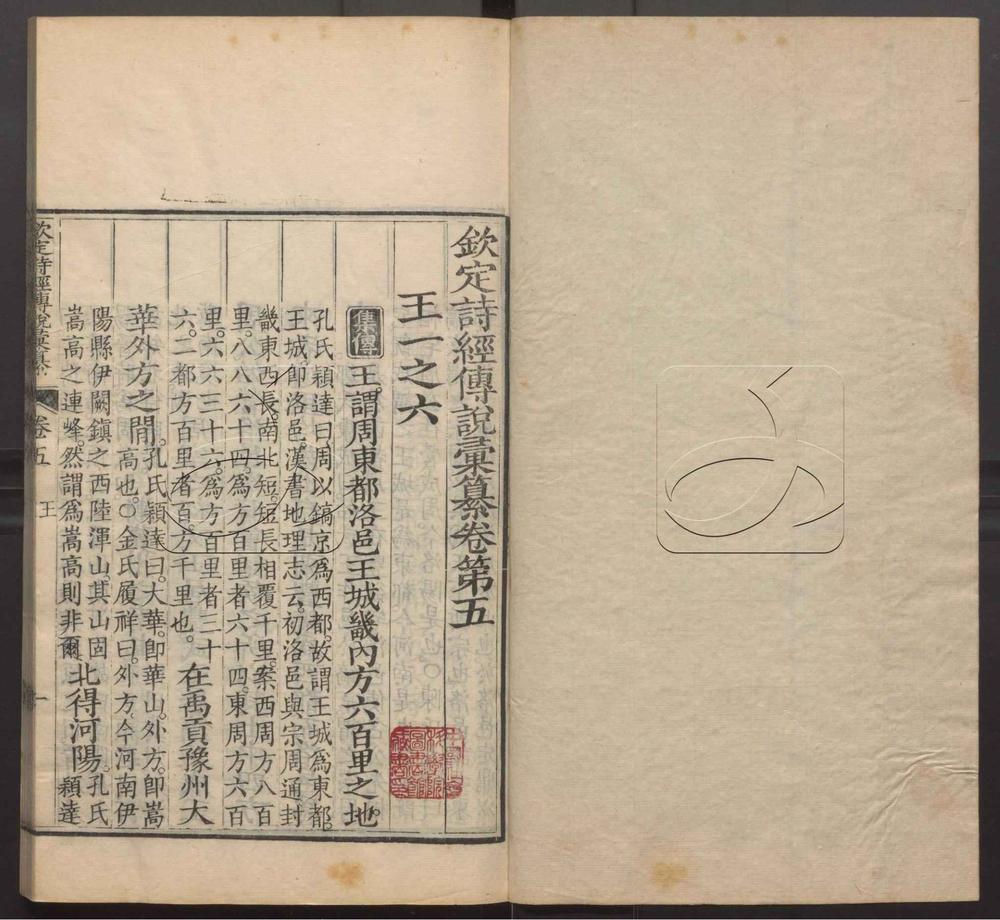 欽定詩經傳說彙纂卷第五
王一之六
集傳 王。謂周東都洛邑王城畿內方六百里之地。
孔氏穎達曰。周以鎬京爲西都。故謂王城爲東都。
王城。卽洛邑。漢書地理志云。初洛邑與宗周通封
畿。東西長。南北短。短長相覆千里。案西周方八百
里。八八六十四。爲方百里者六十四。東周方六百
里。六六三十六。爲方百里者三十
六。二都方百里者百。方千里也。在禹貢豫州大
華外方之閒。孔氏穎達曰。大華。卽華山。外方。卽嵩
高也。○金氏履祥曰。外方。今河南伊
陽縣伊闕鎭之西陸渾山。其山固
嵩高之連峰。然謂爲嵩高則非爾。北得河陽。孔氏
穎達
欽定詩經傳說彙纂 卷五 王 一